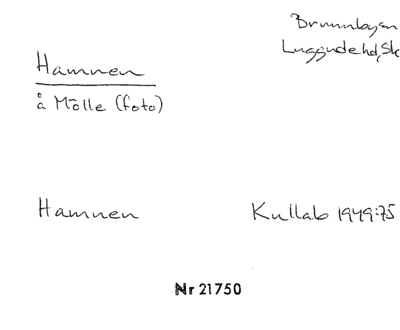 Brunnbysn
Luggudehd, Sk
Hamnen
å Mölle (foto)
Hamnen Kullab 1949:75
Nr 21750